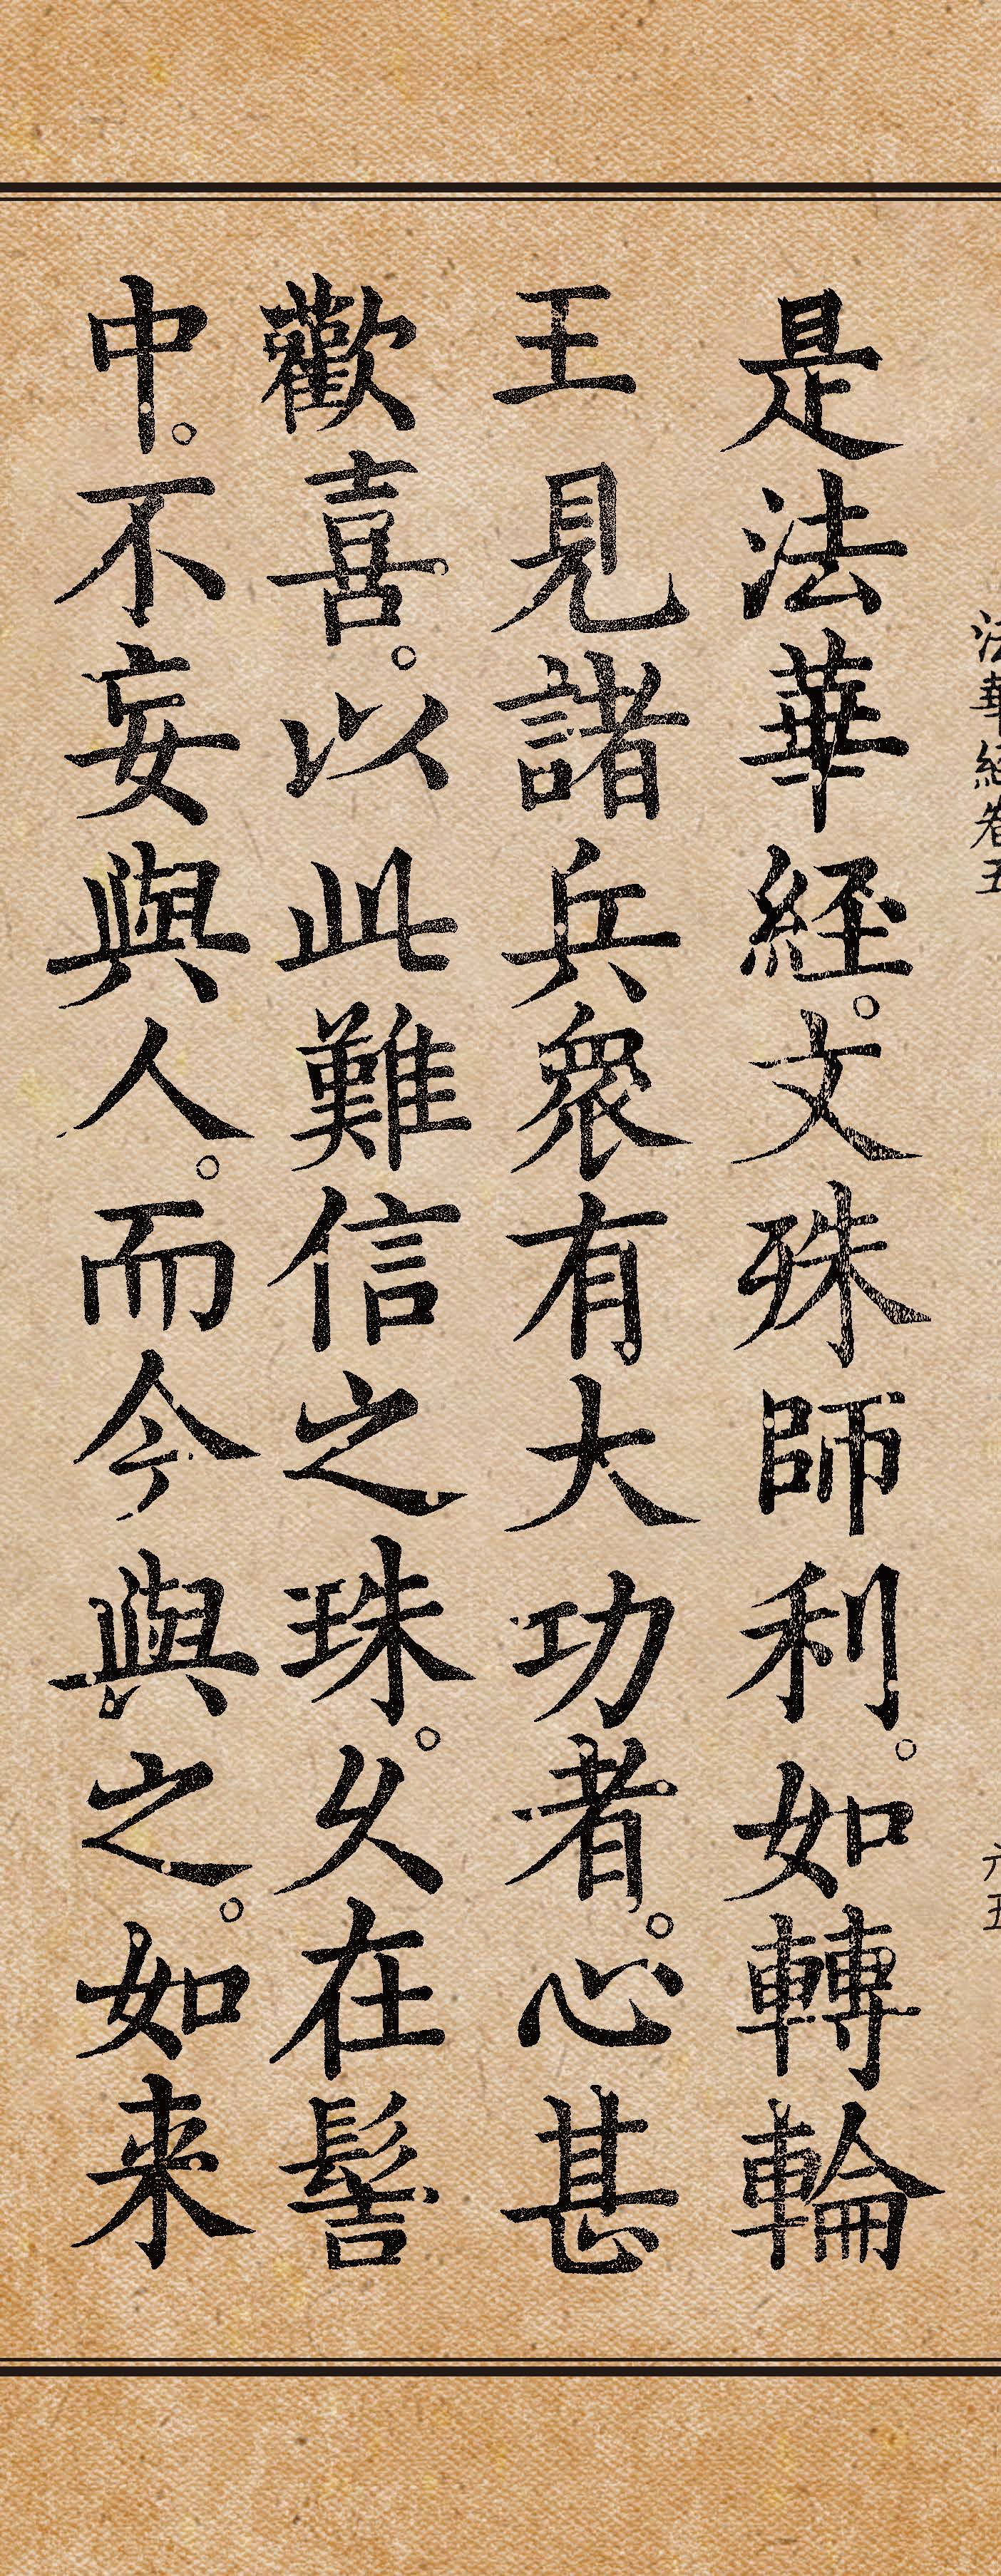 法華經卷五 六五
是法華経。文殊師利。如轉輪
王見諸兵衆有大功者。心甚
歡喜。以此難信之珠。久在髻
中。不妄與人。而今與之。如来